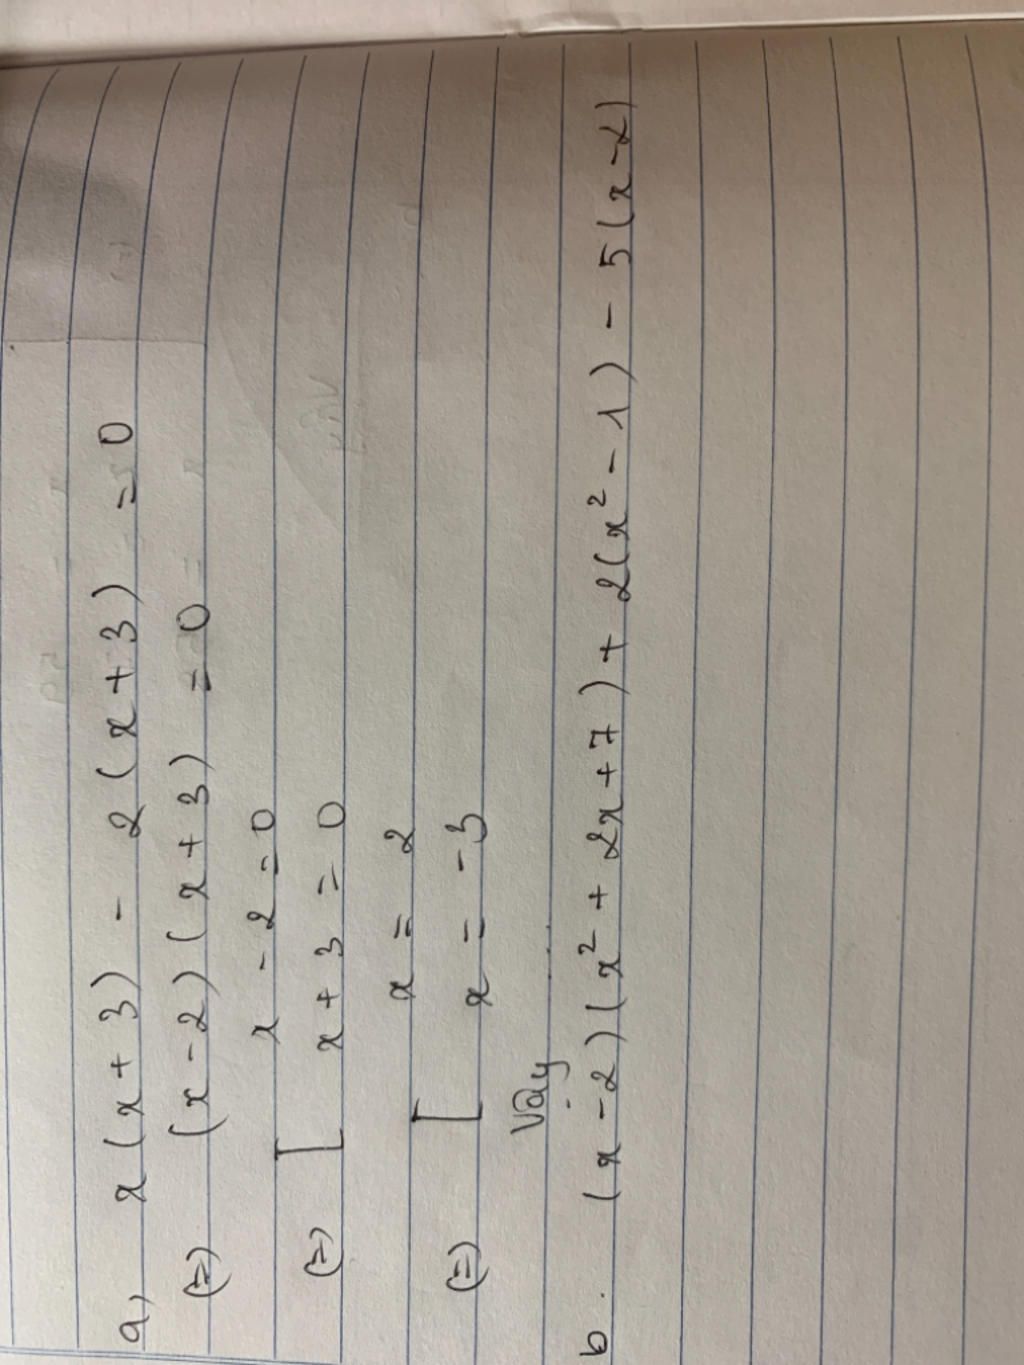 a, x(x+3) - 2(x+3) = 0
(=) (x-2)(x+3) = 0
(=) [ x - 2 = 0
x + 3 = 0
(=) [ x = 2
x = -3
Vậy ....
b. (x-2)(x² + 2x+7) + 2(x² - 1) - 5(x-2)